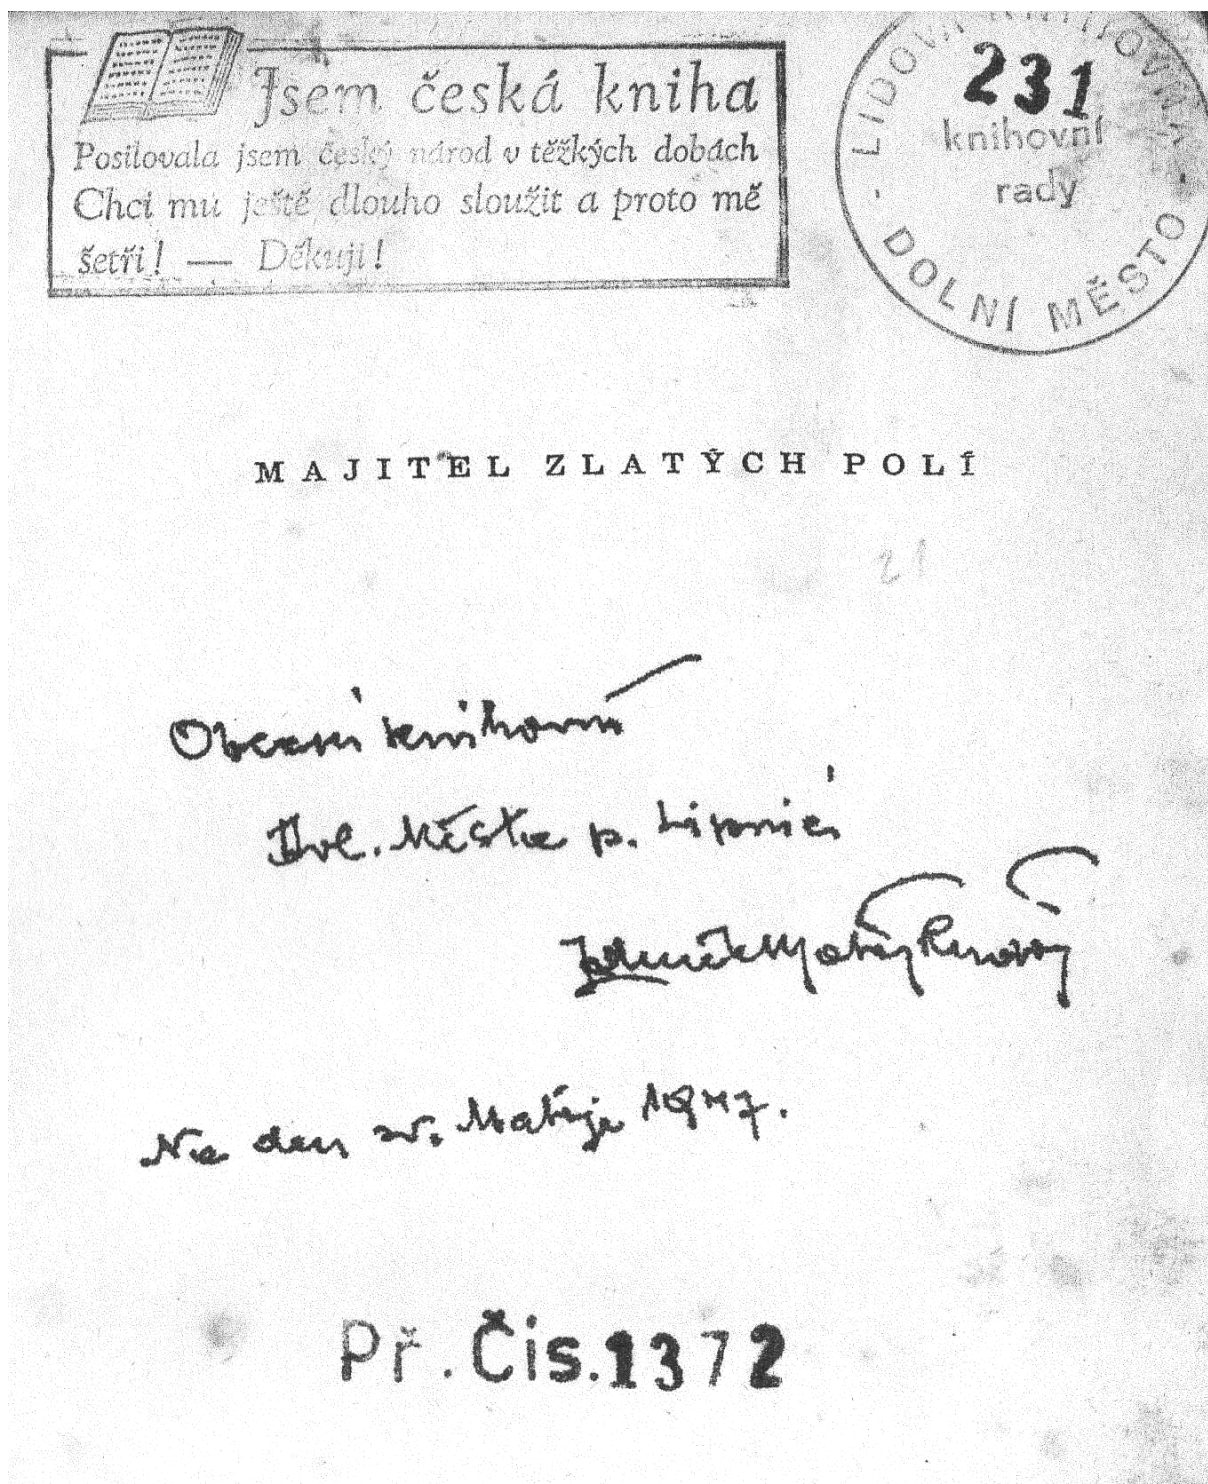 Jsem česká kniha
Posilovala jsem český národ v těžkých dobách
Chci mu ještě dlouho sloužit a proto mě
šetři! — Děkuji!
LIDOVÁ KNIHOVNA
231
knihovní
rady
- DOLNÍ MĚSTO -
MAJITEL ZLATÝCH POLÍ
21
Obecní knihovně
Dol. Města p. Lipnicí
Zdeněk Matěj Kuděj
Na den sv. Matěje 1947.
Př. Čís. 1372